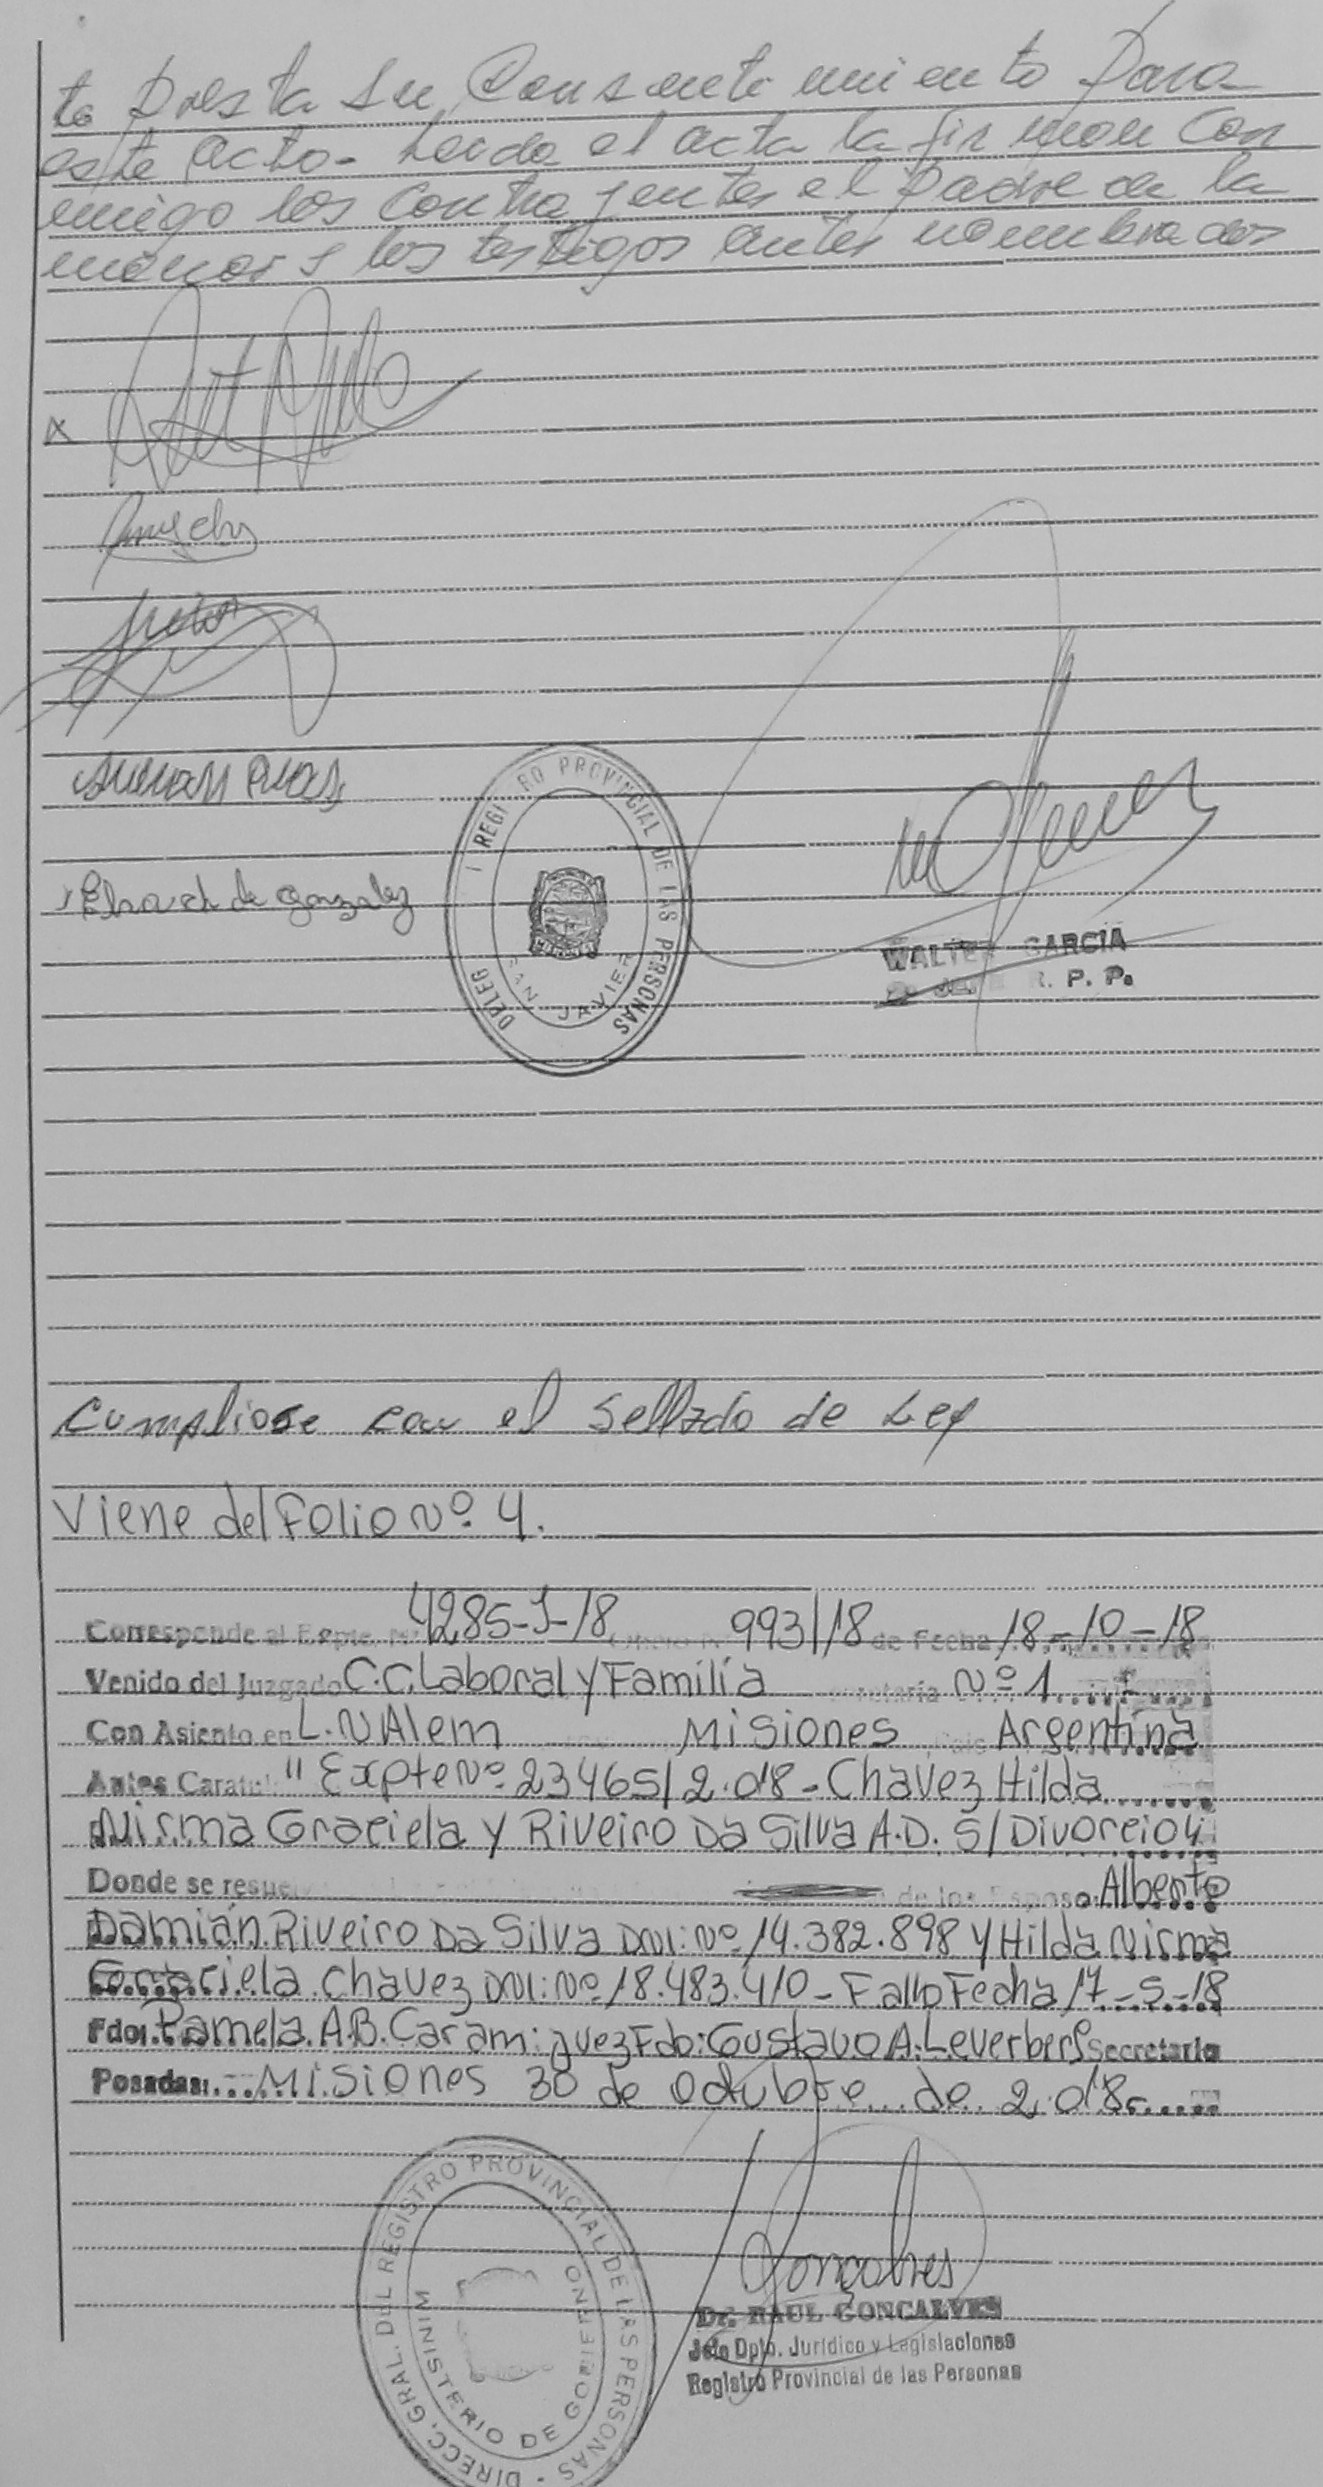 te presta su Consentimiento para
este acto.- Leida el acta la firman Con
migo los Contrayentes el padre de la
menor y los testigos antes nombrados
X
REGISTRO PROVINCIAL DE LAS PERSONAS
DELEG
SAN JAVIER
MISIONES
de Gonzalez
WALTER GARCIA
R. P. P.
Cumpliose con el Sellado de Ley
Viene del Folio Nº 4.
Corresponde al Expte. Nº 4285-J-18 Oficio Nº 993/18 de Fecha 18-10-18
Venido del Juzgado C.C. Laboral y Familia Secretaría Nº 1
Con Asiento en L.N Alem Misiones País Argentina
Autos Caratul "Expte Nº 23465/2.018 - Chavez Hilda
Nirma Graciela y Riveiro Da Silva A.D. S/ Divorcio"
Donde se resuel de los Esposo: Alberto
Damián Riveiro Da Silva DNI: Nº 14.382.898 y Hilda Nirma
Graciela Chavez DNI: Nº 18.483.410 - Fallo Fecha 17-5-18
Fdo: Pamela A.B. Caram: juez Fdo: Gustavo A. Leverberg Secretario
Posadas: Misiones 30 de Octubre de 2.018
DIRECC. GRAL. DEL REGISTRO PROVINCIAL DE LAS PERSONAS -
MINISTERIO DE GOBIERNO
Gonçalves
Dr. RAUL GONCALVES
Jefe Dpto. Jurídico y Legislaciones
Registro Provincial de las Personas